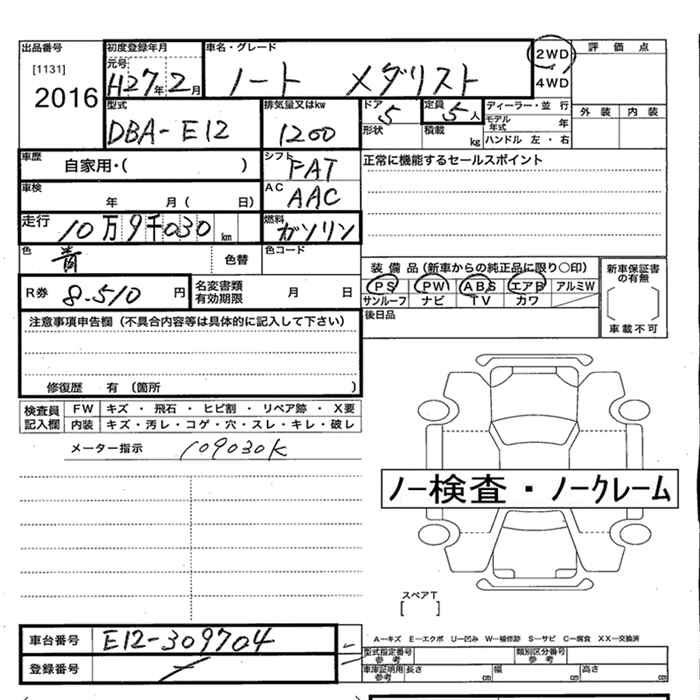 出品番号
[1131]
2016
初度登録年月
元号
H27年2月
車名・グレード
ノート メダリスト
2WD
4WD
評価点
外装 内装
型式
DBA-E12
排気量又はkw
1200
ドア
5
形状
定員
5人
積載
kg
ディーラー・並行
モデル年式 年
ハンドル 左・右
車歴
自家用・( )
シフト
FAT
正常に機能するセールスポイント
車検
年 月( 日)
AC
AAC
走行
10万9千030km
燃料
ガソリン
色
青
色替
色コード
装備品(新車からの純正品に限り〇印)
PS PW ABS エアB アルミW
サンルーフ ナビ TV カワ
新車保証書の有無
車載不可
R券 8.510円
名変書類有効期限 月 日
後日品
注意事項申告欄(不具合内容等は具体的に記入して下さい)
修復歴 有(箇所 )
検査員記入欄
FW キズ・飛石・ヒビ割・リペア跡・X要
内装 キズ・汚レ・コゲ・穴・スレ・キレ・破レ
メーター指示 109030K
ノー検査・ノークレーム
スペアT
[ ]
車台番号 E12-309704
登録番号
A-キズ E-エクボ U-凹み W-補修跡 S-サビ C-腐食 XX-交換済
型式指定番号 参考
類別区分番号 参考
車庫証明用 参考
長さ cm 幅 cm 高さ cm